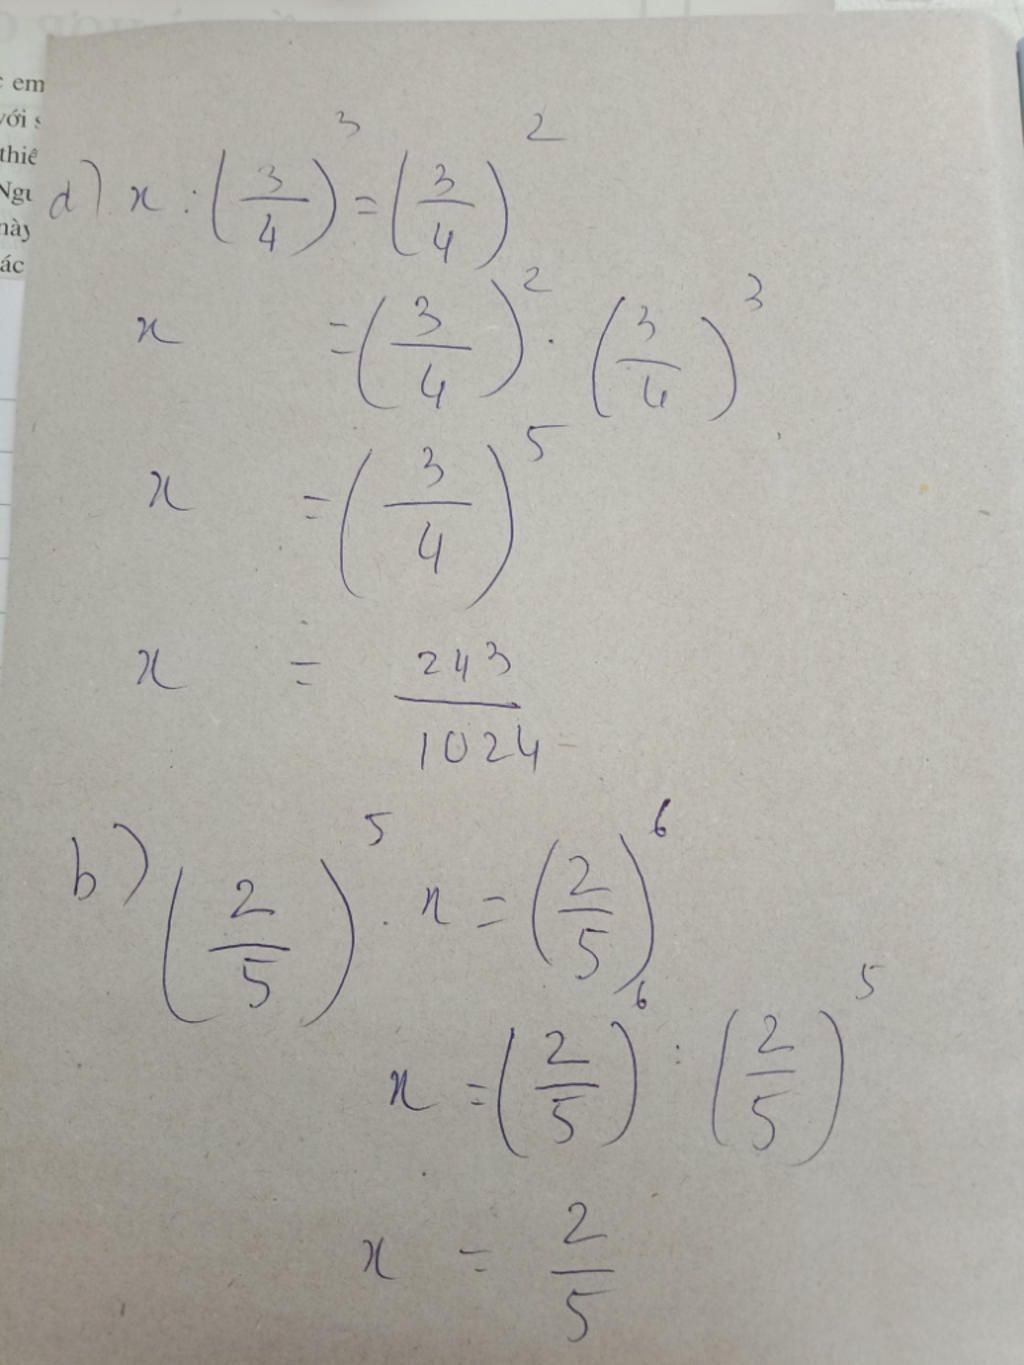 c em
với s
thiê
Ngư
này
ác
d) x : (3/4)^3 = (3/4)^2
x = (3/4)^2 . (3/4)^3
x = (3/4)^5
x = 243/1024
b) (2/5)^5 . x = (2/5)^6
x = (2/5)^6 : (2/5)^5
x = 2/5